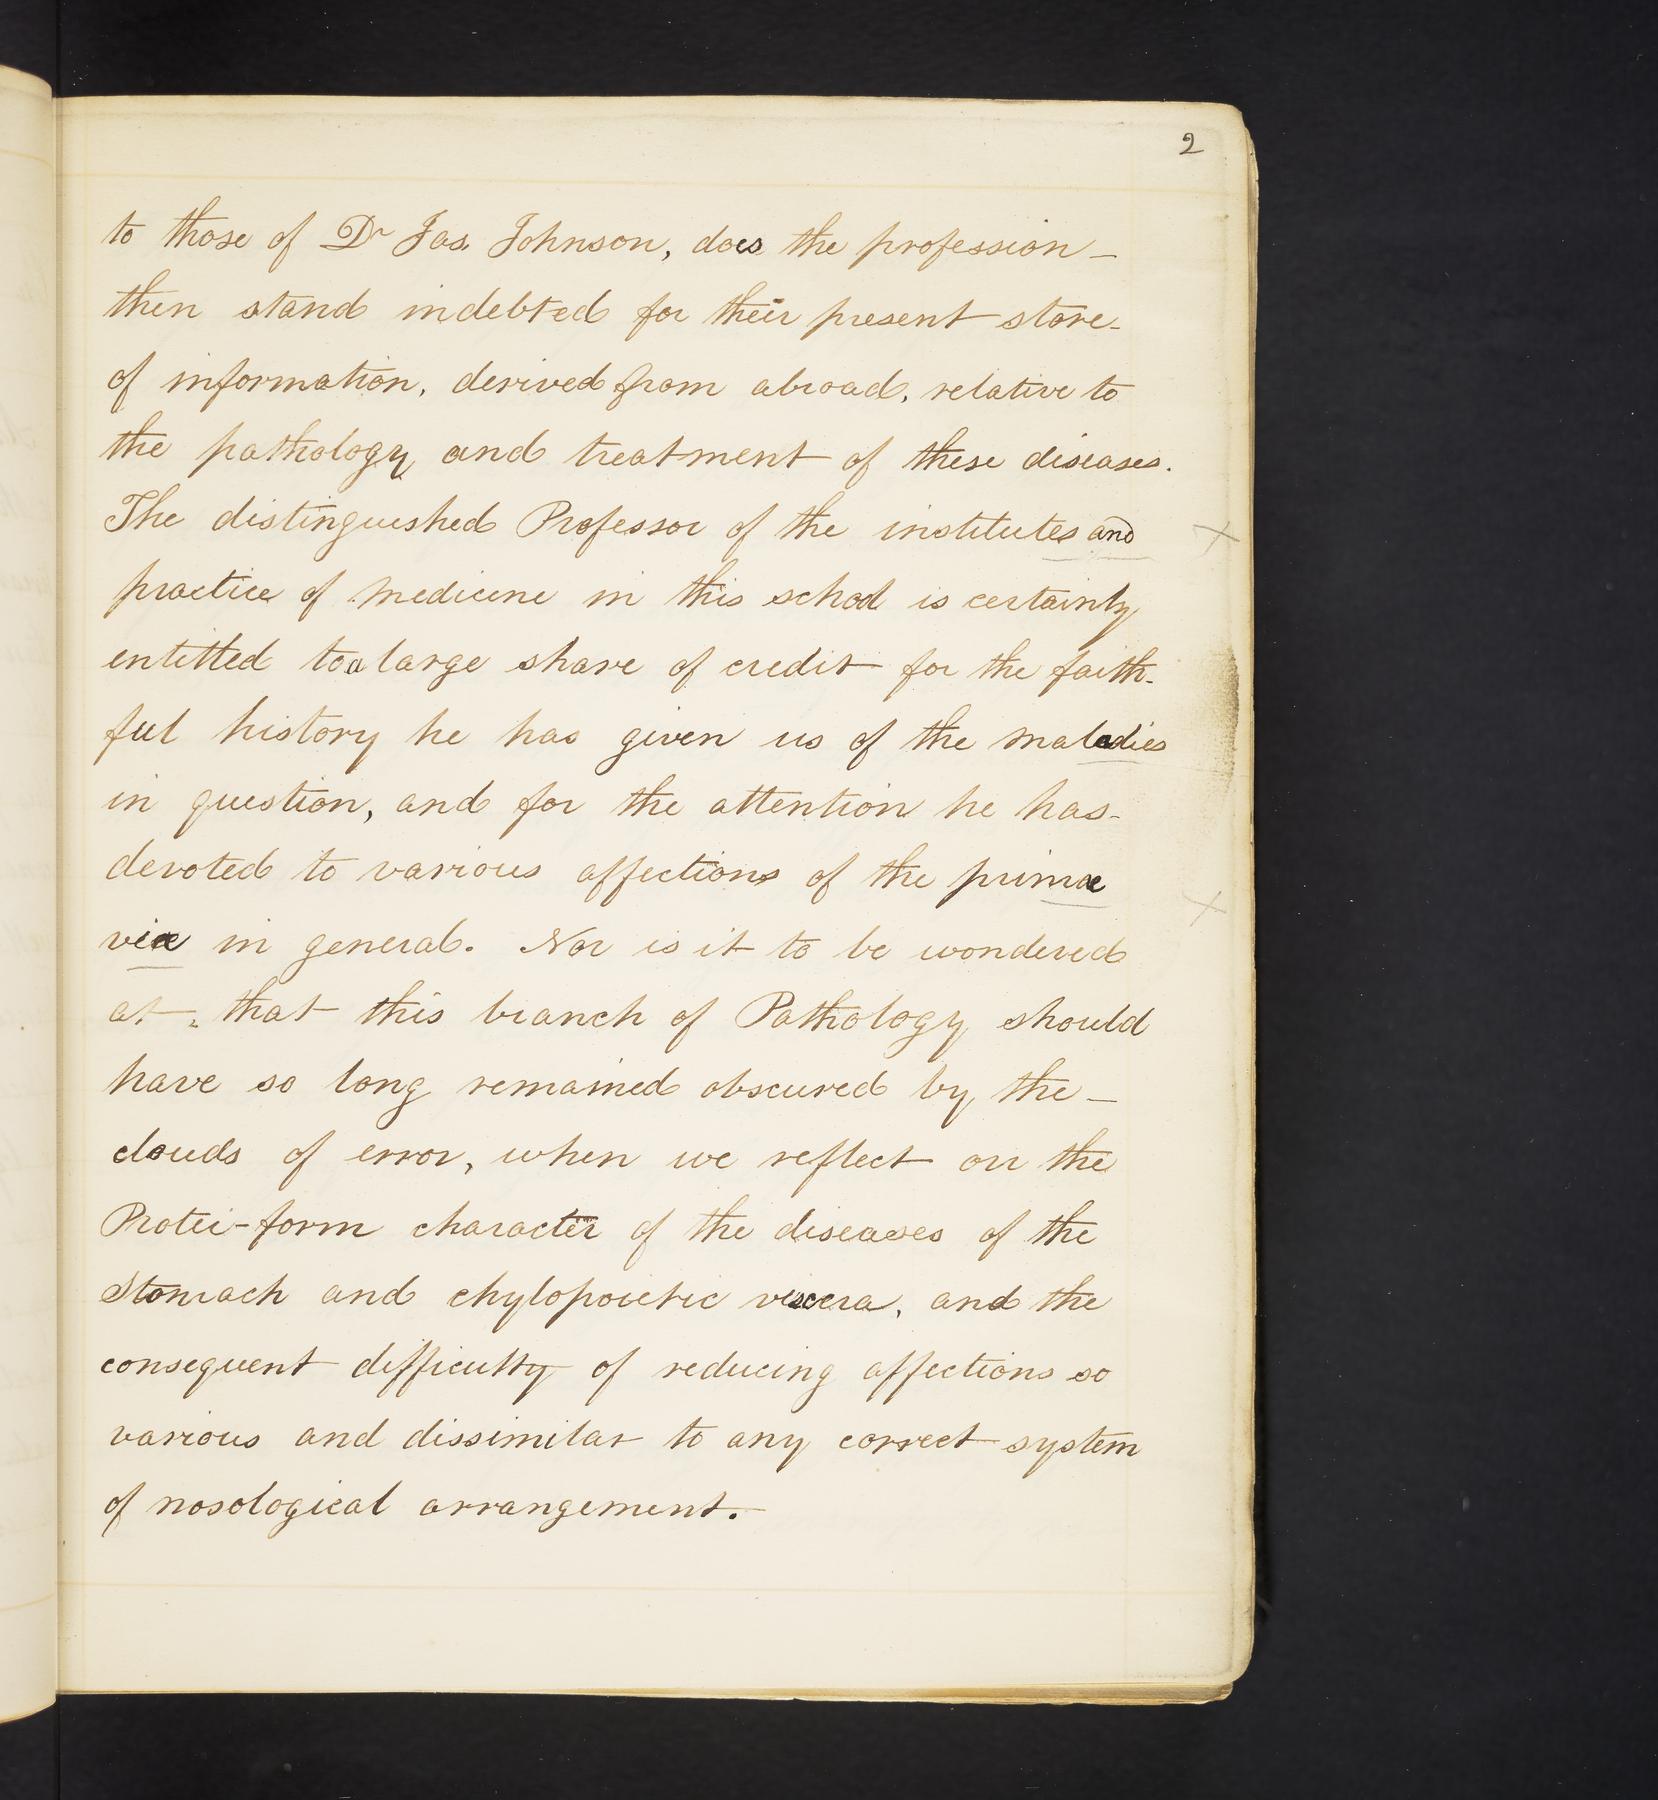 2
to those of Dr Jas. Johnson, does the profession -
then stand indebted for their present store -
of information, derived from abroad, relative to
the pathology and treatment of these diseases.
The distinguished Professor of the institutes and
practice of medicine in this school is certainly
entitled to a large share of credit for the faith-
ful history he has given us of the maladies
in question, and for the attention he has -
devoted to various affections of the primæ
viæ in general. Nor is it to be wondered
at, that this branch of Pathology should
have so long remained obscured by the -
clouds of error, when we reflect on the
Protei-form character of the diseases of the
Stomach and chylopoietic viscera, and the
consequent difficulty of reducing affections so
various and dissimilar to any correct system
of nosological arrangement. -